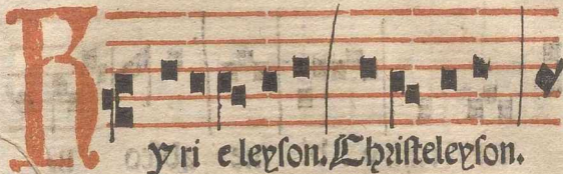 Kyri eleyson. Christeleyson.